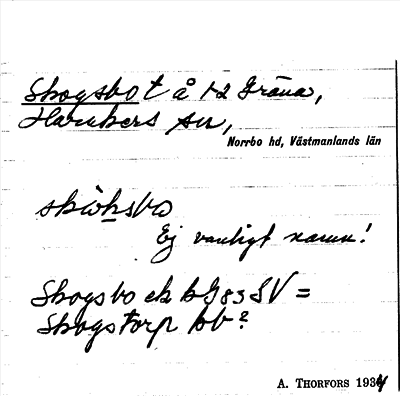 Skogsbo t å 1-2 Gräna,
Harakers sn,
Norrbo hd, Västmanlands län
skòksbo
Ej vanligt namn!
Skogsbo ek bl 83 SV =
Skogstorp bb?
A. THORFORS 1934